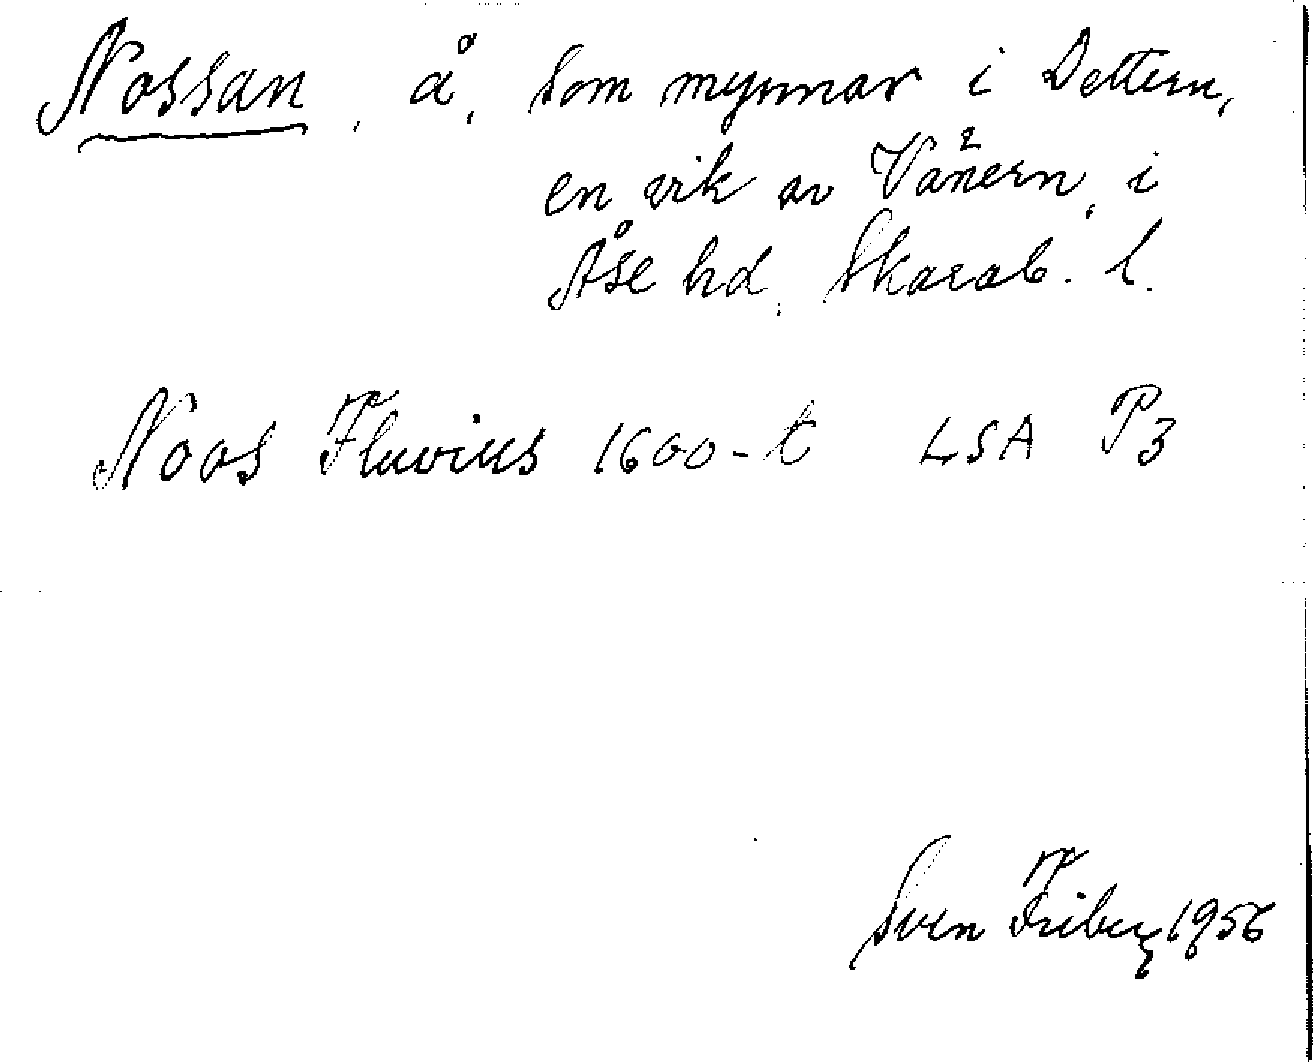 Nossan, å, som mynnar i Dettern,
en vik av Vänern, i
Åse hd, Skarab. l.
Noos Fluvius 1600-t LSA P3
Sven Friberg 1956